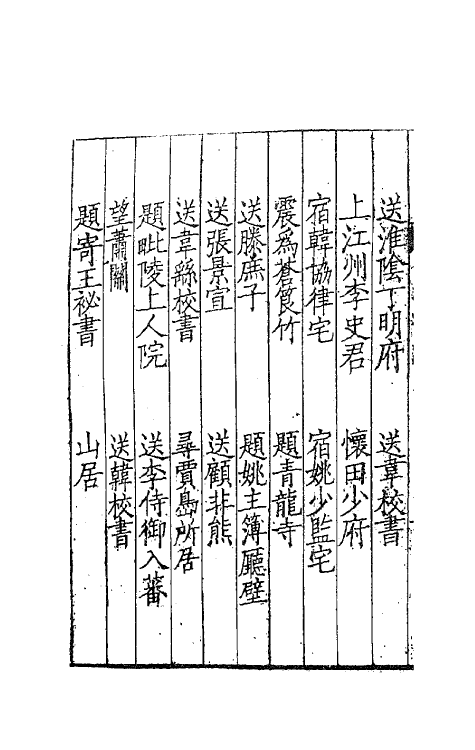 送淮陰丁明府　送韋校書
上江州李史君　懷田少府
宿韓協律宅　宿姚少監宅
震為蒼筤竹　題青龍寺
送滕庶子　題姚主簿廳壁
送張景宣　送顧非熊
送韋繇校書　尋賈島所居
題毗陵上人院　送李侍御入蕃
望蕭關　送韓校書
題寄王祕書　山居